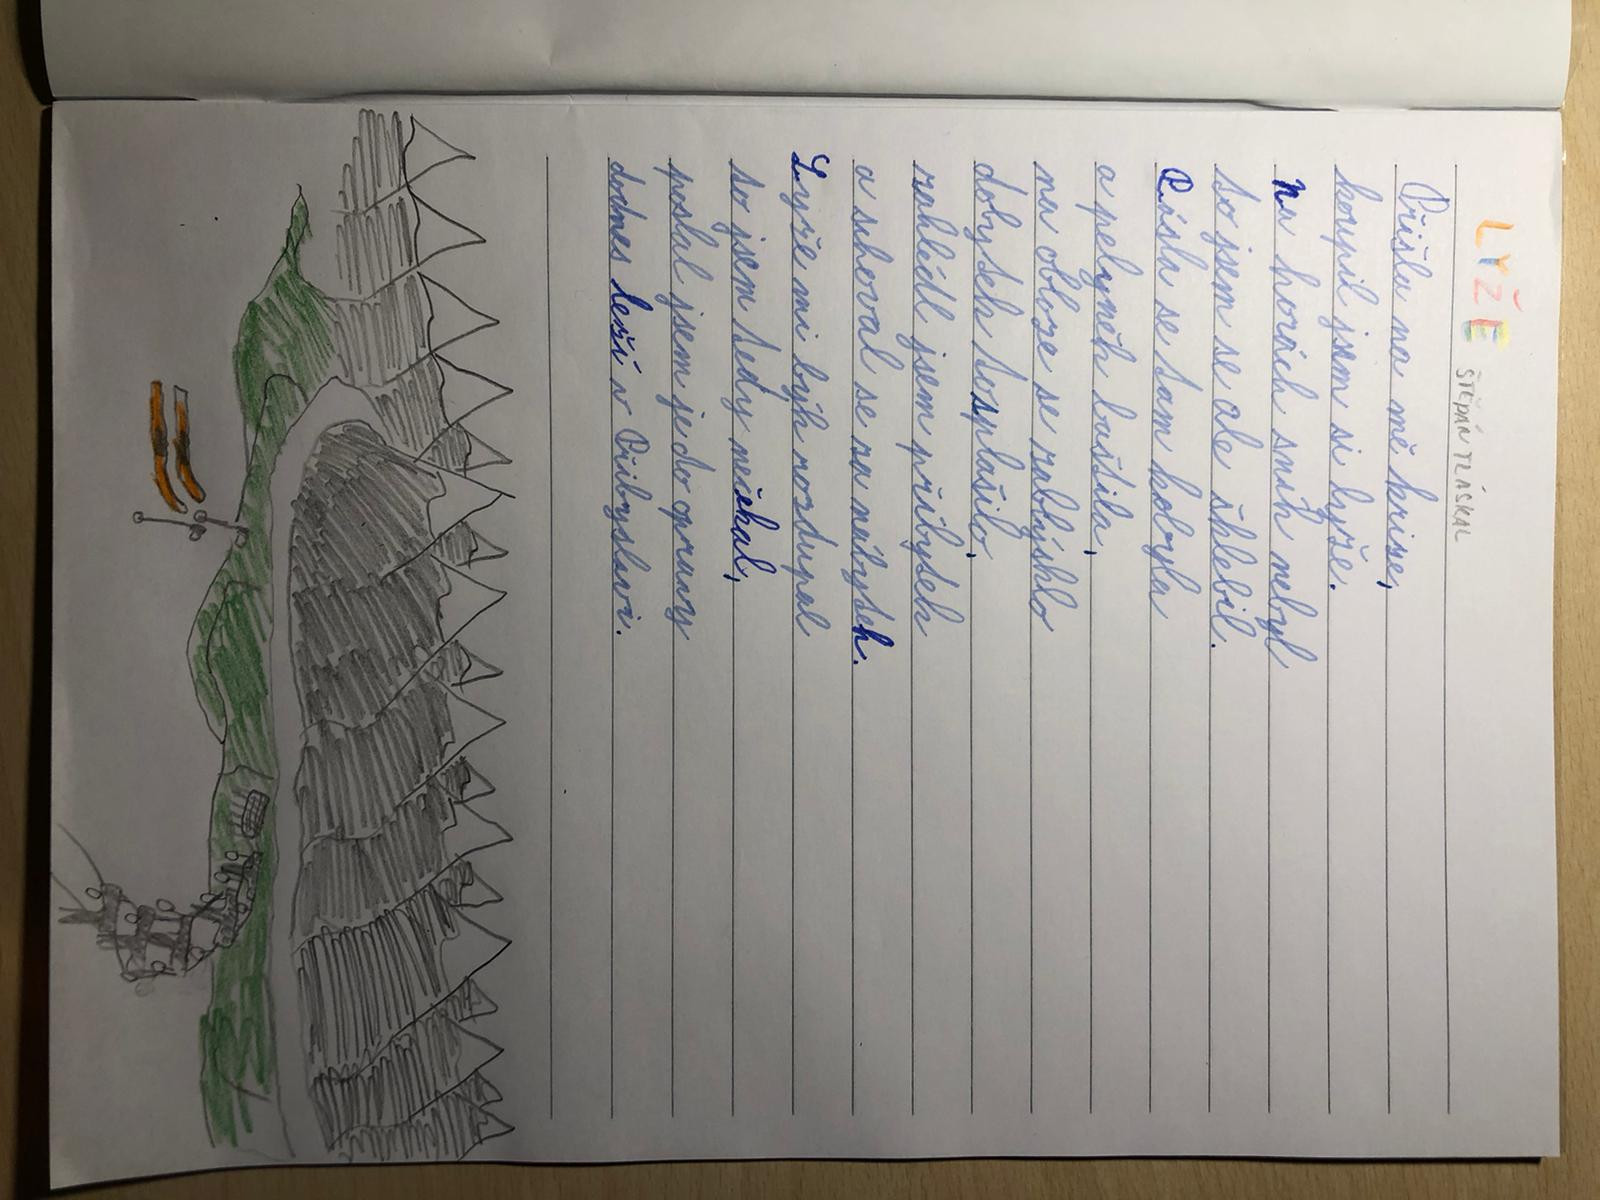 LYŽE
ŠTĚPÁN TLÁSKAL
Přišla na mě krise,
koupil jsem si lyže.
Na horách sníh nebyl
to jsem se ale šklebil.
Pásla se tam kobyla
a pelyněk baštila,
na obloze se zablýsklo
dobytek to splašilo,
zahlédl jsem příbytek
a schoval se za nábytek.
Lyže mi býk rozdupal
to jsem tedy nečekal,
poslal jsem je do opravy
dodnes leží v Přibyslavi.